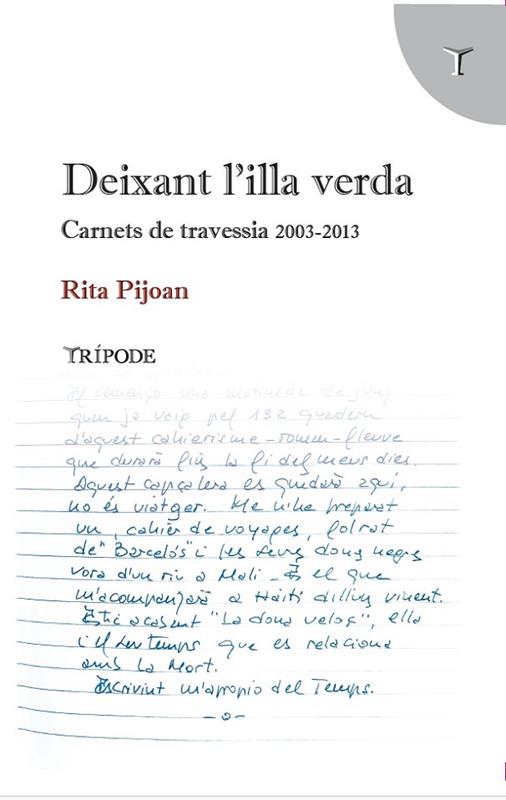 Deixant l'illa verda
Carnets de travessia 2003-2013
Rita Pijoan
TRÍPODE
començo una matinada de juny
quan ja vaig pel 132 quadern
d'aquest cahierisme-roman-fleuve
que durarà fins la fi del meus dies.
Aquest capçalera es quedarà aquí,
no és viatger. Me n'he preparat
un, cahier de voyages, folrat
de "Barcelós" i les seves dones negres
vora d'un riu a Mali. És el que
m'acompanyarà a Haití dilluns vinent.
Estic acabant "La dona veloç", ella
i el seu temps que es relaciona
amb la Mort.
Escrivint m'apropio del Temps.